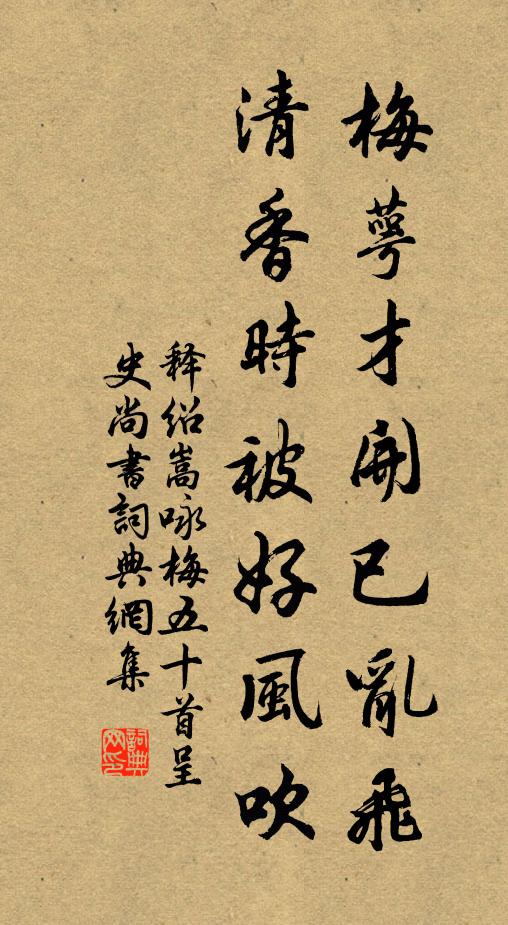 梅萼才開已亂飛
清香時被好風吹
釋绍嵩咏梅五十首呈
史尚書詞典網集
詞典网印